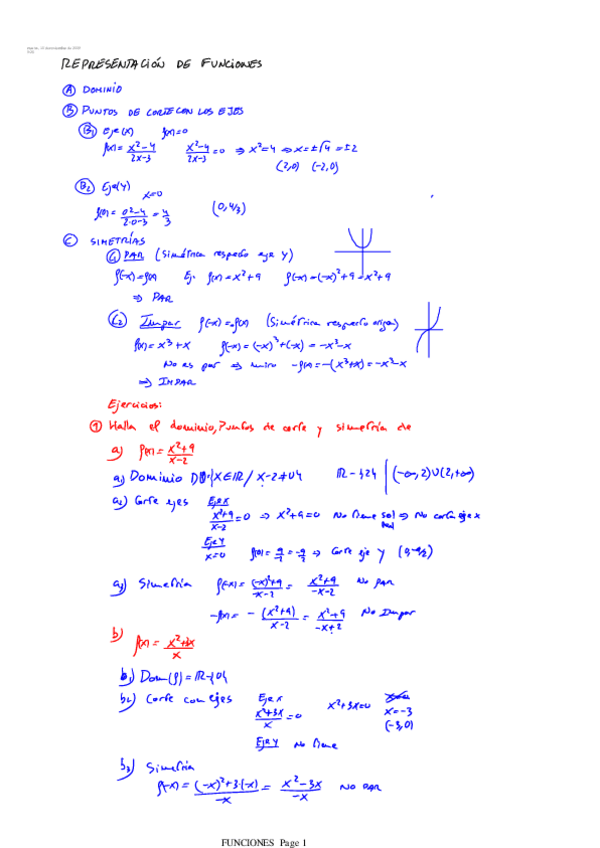 REPRESENTACIÓN DE FUNCIONES
Ⓐ DOMINIO
Ⓑ PUNTOS DE CORTE CON LOS EJES
B₁ Eje(X) f(x)=0
f(x)= (x²-4)/(2x-3) (x²-4)/(2x-3) =0 ⇒ x²=4 ⇒ x=±√4 = ±2
(2,0) (-2,0)
B₂ Eje(Y)
x=0
f(0)= (0²-4)/(2·0-3) = 4/3 (0,4/3)
Ⓒ SIMETRÍAS
C₁ PAR (Simétrica respecto eje Y)
f(-x)=f(x) Ej: f(x)=x²+9 f(-x)=(-x)²+9=x²+9
⇒ PAR
C₂ Impar f(-x)=-f(x) (Simétrica respecto origen)
f(x)=x³+x f(-x)=(-x)³+(-x)=-x³-x
No es par ⇒ miro -f(x)=-(x³+x)=-x³-x
⇒ IMPAR
Ejercicios:
① Halla el dominio, Puntos de corte y simetría de
a) f(x)= (x²+9)/(x-2)
a₁) Dominio D={x∈ℝ/ x-2≠0} ℝ-{2} (-∞,2)∪(2,+∞)
a₂) Corte ejes Eje x
(x²+9)/(x-2) =0 ⇒ x²+9=0 No tiene sol ⇒ No corta eje x
Real
Eje Y
x=0 f(0)= 9/-2 = -9/2 ⇒ Corte eje Y (0,-9/2)
a₃) Simetría f(-x)= ((-x)²+9)/(-x-2) = (x²+9)/(-x-2) No PAR
-f(x)= - (x²+9)/(x-2) = (x²+9)/(-x+2) No Impar
b) f(x)= (x²+3x)/x
b₁) Dom(f)=ℝ-{0}
b₂) Corte con ejes Eje x
(x²+3x)/x =0 x²+3x=0 x=0
x=-3
(-3,0)
Eje Y No tiene
b₃) Simetría
f(-x)= ((-x)²+3·(-x))/(-x) = (x²-3x)/(-x) NO PAR
FUNCIONES Page 1